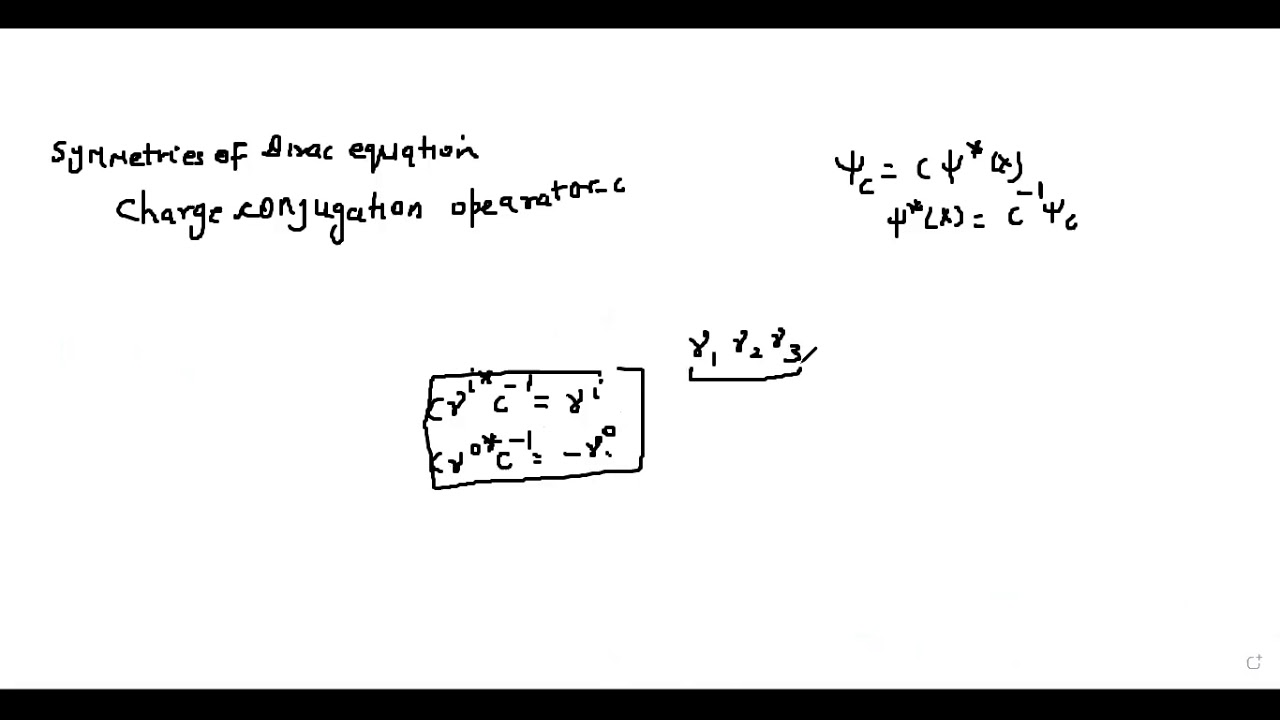 Symmetries of Dirac equation
Charge conjugation opearator-c
ψ_c = C ψ*(x)
ψ*(x) = C⁻¹ ψ_c
γ₁ γ₂ γ₃
Cγⁱ* C⁻¹ = γⁱ
Cγ⁰* C⁻¹ = -γ⁰